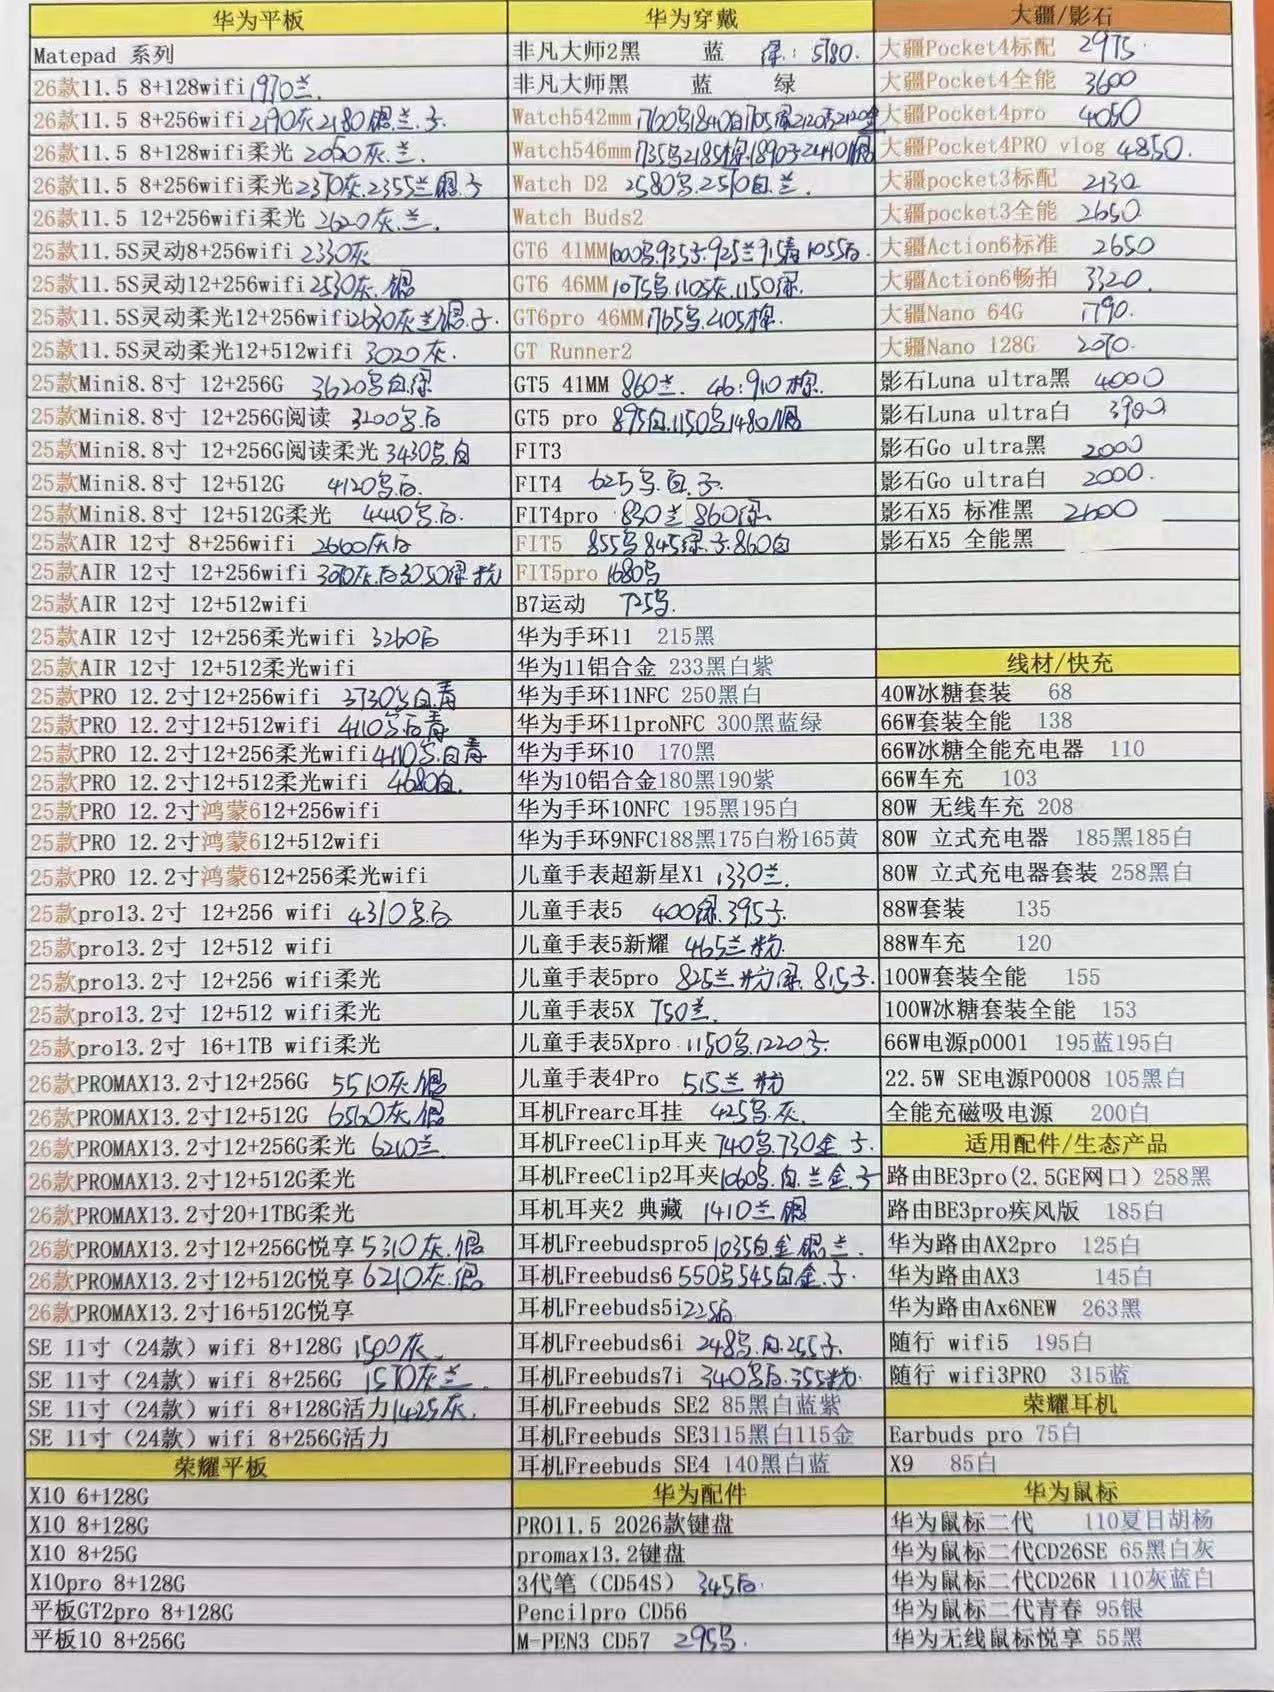 华为平板
Matepad 系列
26款11.5 8+128wifi 1970兰.
26款11.5 8+256wifi 2190灰2180银.兰.子
26款11.5 8+128wifi柔光 2020灰.兰.
26款11.5 8+256wifi柔光2370灰.2355兰银子
26款11.5 12+256wifi柔光 2620灰.兰.
25款11.5S灵动8+256wifi 2330灰
25款11.5S灵动12+256wifi2530灰.银
25款11.5S灵动柔光12+256wifi2630灰兰银.子.
25款11.5S灵动柔光12+512wifi 3020灰.
25款Mini8.8寸 12+256G 3620鸟白绿
25款Mini8.8寸 12+256G阅读 3200鸟白
25款Mini8.8寸 12+256G阅读柔光 3430鸟.白
25款Mini8.8寸 12+512G 4120鸟白.
25款Mini8.8寸 12+512G柔光 4440鸟白.
25款AIR 12寸 8+256wifi 2660灰白
25款AIR 12寸 12+256wifi 3070灰.白3050绿粉
25款AIR 12寸 12+512wifi
25款AIR 12寸 12+256柔光wifi 3260白
25款AIR 12寸 12+512柔光wifi
25款PRO 12.2寸12+256wifi 3730鸟白.青
25款PRO 12.2寸12+512wifi 4110鸟白青
25款PRO 12.2寸12+256柔光wifi4110鸟.白青
25款PRO 12.2寸12+512柔光wifi 4680白.
25款PRO 12.2寸鸿蒙612+256wifi
25款PRO 12.2寸鸿蒙612+512wifi
25款PRO 12.2寸鸿蒙612+256柔光wifi
25款pro13.2寸 12+256 wifi 4310鸟白
25款pro13.2寸 12+512 wifi
25款pro13.2寸 12+256 wifi柔光
25款pro13.2寸 12+512 wifi柔光
25款pro13.2寸 16+1TB wifi柔光
26款PROMAX13.2寸12+256G 5510灰.银
26款PROMAX13.2寸12+512G 6560灰.银
26款PROMAX13.2寸12+256G柔光 6210兰
26款PROMAX13.2寸12+512G柔光
26款PROMAX13.2寸20+1TBG柔光
26款PROMAX13.2寸12+256G悦享 5310灰.银
26款PROMAX13.2寸12+512G悦享 6210灰.银
26款PROMAX13.2寸16+512G悦享
SE 11寸（24款）wifi 8+128G 1500灰
SE 11寸（24款）wifi 8+256G 1570灰兰.
SE 11寸（24款）wifi 8+128G活力1425灰.
SE 11寸（24款）wifi 8+256G活力
荣耀平板
X10 6+128G
X10 8+128G
X10 8+25G
X10pro 8+128G
平板GT2pro 8+128G
平板10 8+256G
华为穿戴
非凡大师2黑 蓝 绿: 5780.
非凡大师黑 蓝 绿
Watch542mm 1760鸟1840白1705绿2120白2120金
Watch546mm 1735鸟2185棕.1890子2440银
Watch D2 2580鸟.2510白.兰.
Watch Buds2
GT6 41MM1000鸟.935子.925兰915青1055白.
GT6 46MM 1075鸟.1105灰.1150绿.
GT6pro 46MM 1765鸟.2105棕.
GT Runner2
GT5 41MM 860兰. 46:910棕.
GT5 pro 895白.1150鸟1480银
FIT3
FIT4 625鸟.白.子.
FIT4pro 830兰 860绿.
FIT5 855鸟845绿.子.860白
FIT5pro 1680鸟
B7运动 725鸟.
华为手环11 215黑
华为11铝合金 233黑白紫
华为手环11NFC 250黑白
华为手环11proNFC 300黑蓝绿
华为手环10 170黑
华为10铝合金180黑190紫
华为手环10NFC 195黑195白
华为手环9NFC188黑175白粉165黄
儿童手表超新星X1 1330兰.
儿童手表5 400绿.395子.
儿童手表5新耀 465兰粉.
儿童手表5pro 825兰粉绿.815子.
儿童手表5X 750兰.
儿童手表5Xpro 1150鸟.1220子.
儿童手表4Pro 515兰粉
耳机Frearc耳挂 425鸟.灰.
耳机FreeClip耳夹 740鸟730金.子.
耳机FreeClip2耳夹1060鸟.白.兰金.子
耳机耳夹2 典藏 1410兰银
耳机Freebudspro5 1035白金银兰.
耳机Freebuds6 550鸟545白金.子.
耳机Freebuds5i225白
耳机Freebuds6i 248鸟.白.255子.
耳机Freebuds7i 340鸟白.355粉.
耳机Freebuds SE2 85黑白蓝紫
耳机Freebuds SE3115黑白115金
耳机Freebuds SE4 140黑白蓝
华为配件
PRO11.5 2026款键盘
promax13.2键盘
3代笔（CD54S） 345白.
Pencilpro CD56
M-PEN3 CD57 295鸟.
大疆/影石
大疆Pocket4标配 2975.
大疆Pocket4全能 3600
大疆Pocket4pro 4050
大疆Pocket4PRO vlog 4850.
大疆pocket3标配 2130
大疆pocket3全能 2650.
大疆Action6标准 2650
大疆Action6畅拍 3320.
大疆Nano 64G 1790.
大疆Nano 128G 2070.
影石Luna ultra黑 4000
影石Luna ultra白 3900
影石Go ultra黑 2000
影石Go ultra白 2000.
影石X5 标准黑 2600
影石X5 全能黑
线材/快充
40W冰糖套装 68
66W套装全能 138
66W冰糖全能充电器 110
66W车充 103
80W 无线车充 208
80W 立式充电器 185黑185白
80W 立式充电器套装 258黑白
88W套装 135
88W车充 120
100W套装全能 155
100W冰糖套装全能 153
66W电源p0001 195蓝195白
22.5W SE电源P0008 105黑白
全能充磁吸电源 200白
适用配件/生态产品
路由BE3pro(2.5GE网口）258黑
路由BE3pro疾风版 185白
华为路由AX2pro 125白
华为路由AX3 145白
华为路由Ax6NEW 263黑
随行 wifi5 195白
随行 wifi3PRO 315蓝
荣耀耳机
Earbuds pro 75白
X9 85白
华为鼠标
华为鼠标二代 110夏日胡杨
华为鼠标二代CD26SE 65黑白灰
华为鼠标二代CD26R 110灰蓝白
华为鼠标二代青春 95银
华为无线鼠标悦享 55黑